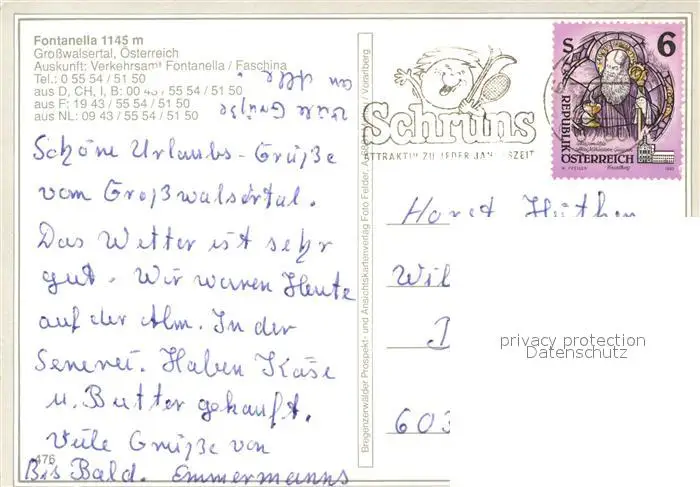 Fontanella 1145 m
Großwalsertal, Österreich
Auskunft: Verkehrsamt Fontanella / Faschina
Tel.: 0 55 54 / 51 50
aus D, CH, I, B: 00 43 / 55 54 / 51 50
aus F: 19 43 / 55 54 / 51 50
aus NL: 09 43 / 55 54 / 51 50
Schöne Urlaubs-Grüße
vom Großwalsertal.
Das Wetter ist sehr
gut. Wir waren Heute
auf der Alm. In der
Sennerei. Haben Käse
u. Butter gekauft.
Viele Grüße von
Bis Bald. Emmermanns
476
Grüße
Bregenzerwälder Prospekt- und Ansichtskartenverlag Foto Felder, Vorarlberg
Schruns
ATTRAKTIV ZU JEDER JAHRESZEIT
S 6
REPUBLIK
ÖSTERREICH
Horst
Wil
603
privacy protection
Datenschutz